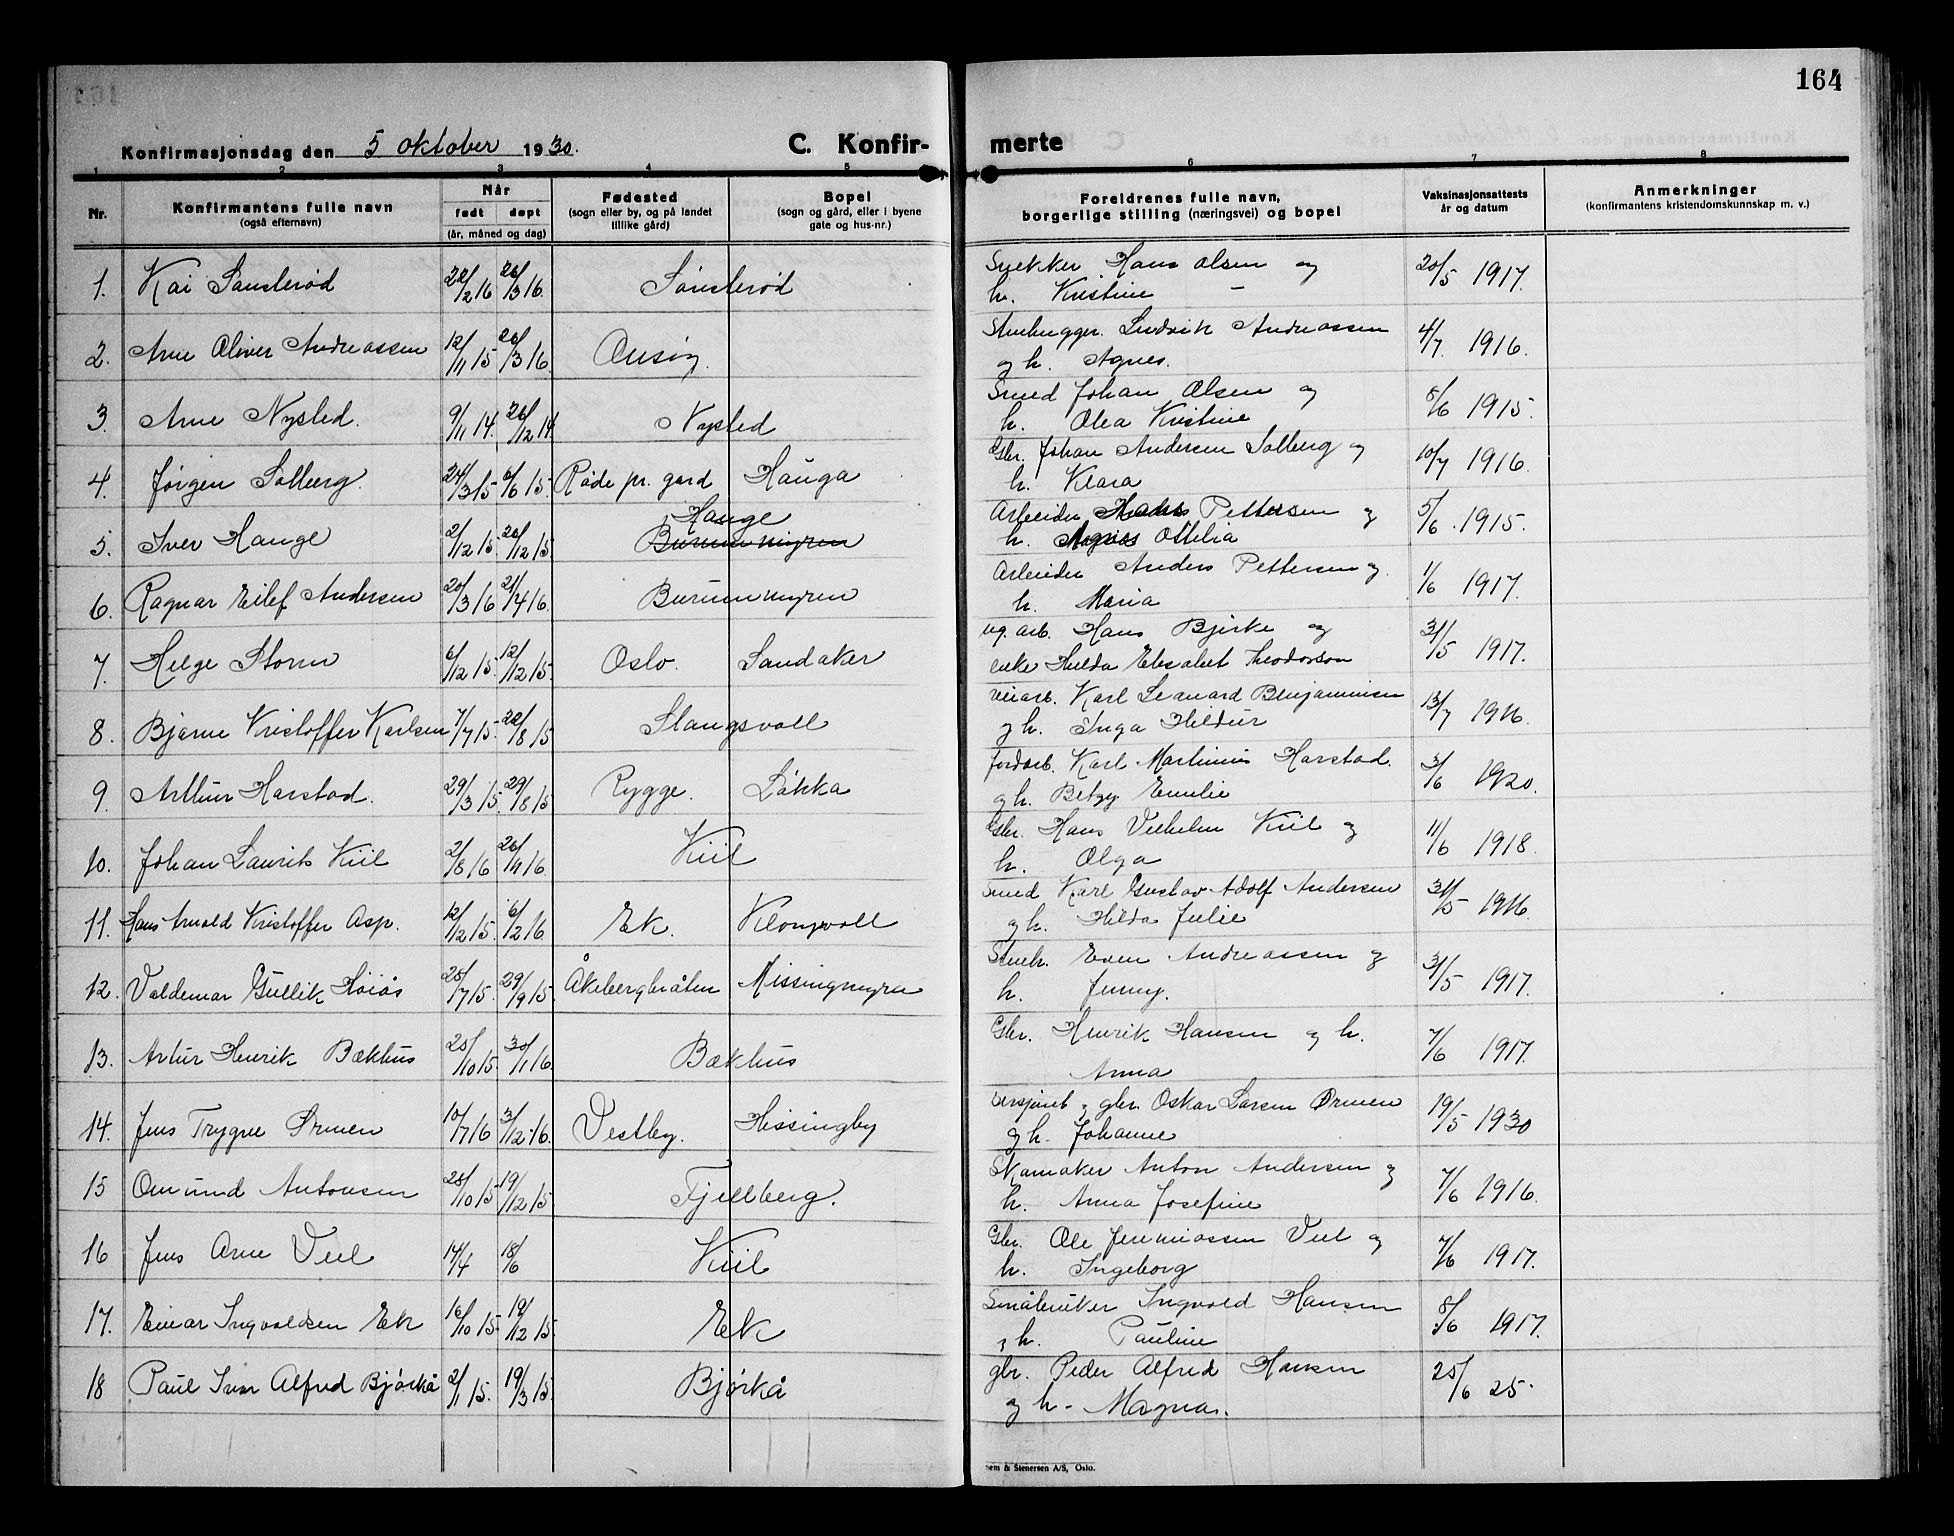 164
Konfirmasjonsdag den 5 oktober 1930. C. Konfir- merte
1 2 3 4 5 6 7 8
Nr. Konfirmantens fulle navn (også efternavn) Når født døpt (år, måned og dag) Fødested (sogn eller by, og på landet tillike gård) Bopel (sogn og gård, eller i byene gate og hus-nr.) Foreldrenes fulle navn, borgerlige stilling (næringsvei) og bopel Vaksinasjonsattests år og datum Anmerkninger (konfirmantens kristendomskunnskap m. v.)
1. Kai Sønsterød 22/2 16 26/3 16. Sønsterød Snekker Hans Olsen og 20/5 1917.
h. Kristine —
2. Arne Oliver Andreassen 12/11 15 26/3 16. Ludvik Andreassen 4/7. 1916.
og h. Agnes.
3. Arne Nysted. 9/11 14. 26/12 14 Nysted Smed Johan Olsen og 8/6 1915.
h. Olea Kristine
4. Jørgen Solberg. 24/3 15 6/6 15 Råde pr. gard Hauga Gbr. Johan Andersen Solberg og 10/7 1916.
h. Klara
5. Iver Hauge 2/12 15. 26/12 15 Hauge Burummyren Arbeider Hans Pettersen og 5/6. 1915.
h. Ottilia
6. Ragnar Eilef Andersen 20/3 16 24/4 16. Burummyren Arbeider Anders Pettersen og 1/6 1917.
h. Maria
7. Helge Storm 6/12 15. 12/12 15. Oslo. Sandaker ug. arb. Hans Bjerke og 31/5 1917.
enke Hilda Elisabet Theodorson
8. Bjarne Kristoffer Karlsen 7/7 15. 22/8 15 Slangsvoll veiarb. Karl Leonard Benjaminsen 13/7 1916.
og h. Inga Hildur
9. Arthur Harstad. 29/3 15. 29/8 15 Rygge. Løkka jordarb. Karl Martinius Harstad. 3/6 1920.
og h. Betzy Emilie
10. Johan Laurits Kiil 2/8 16 26/11 16. Kiil Gbr. Hans Vilhelm Kiil og 11/6 1918.
h. Olga
11. Hans Arnold Kristoffer Asp. 12/12 15. 6/2 16. Ek. Smed Karl Gustav Adolf Andersen 31/5 1916.
og h. Hilda Julie
12. Valdemar Gullik Høiås 25/7 15. 29/9 15. Åkebergbråten Missingmyra Stenh. Even Andreassen og 31/5 1917.
h. Jenny.
13. Artur Henrik Bækhus 25/10 15. 30/1 16. Bækhus Gbr. Henrik Hansen og h. 7/6 1917.
Anna
14. Jens Trygve Ormen 10/7 16 3/12 16. Vestby. Missingby og gbr. Oskar Larsen Ormen 19/5 1930
og h. Johanne
15 Omund Antonsen 28/10 15 19/12 15 Fjellberg. Skomaker Anton Andersen og 7/6 1916.
h. Anna Josefine
16 Jens Arne Veel 14/4 18/6 Kiil Gbr. Ole Jeremiassen Veel og 7/6 1917.
h. Ingeborg
17. Einar Ingvaldsen Ek 16/10 15. 19/12 15 Ek Småbruker Ingvald Hansen 8/6 1917.
og h. Pauline
18 Paul Ivar Alfred Bjørkå 2/1 15. 19/3 15. Bjørkå gbr. Peder Alfred Hansen 25/6 25.
og h- Magna.
sem & Stenersen A/S, Oslo.